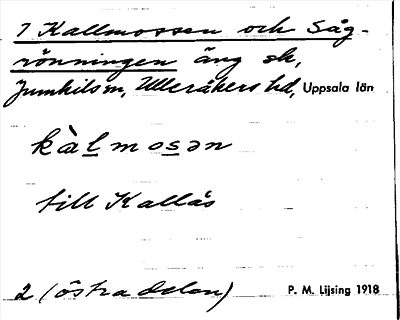 7 Kallmossen och Såg-
rönningen äng sk,
Jumkils sn, Ulleråkers hd, Uppsala län
kàlmosən
till Kallås
2 (östra delen)
P. M. Lijsing 1918